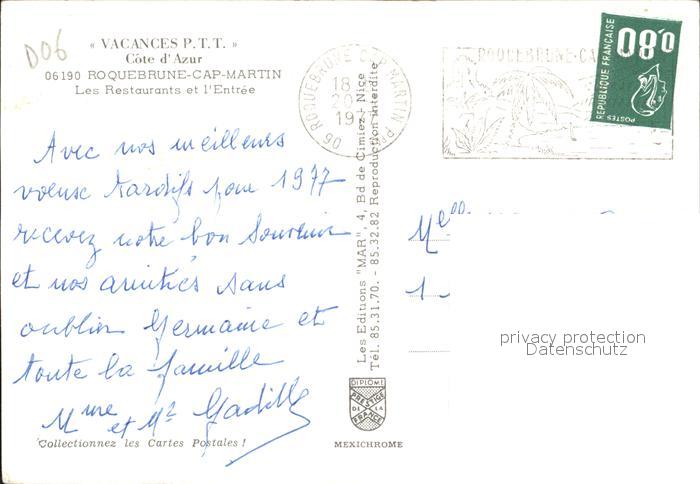 D06
« VACANCES P.T.T. »
Côte d'Azur
06190 ROQUEBRUNE-CAP-MARTIN
Les Restaurants et l'Entrée
Avec nos meilleurs
voeux tardifs pour 1977
recevez notre bon souvenir
et nos amitiés sans
oublier Germaine et
toute la famille
Mme et Mr
Collectionnez les Cartes Postales !
Les Editions "MAR", 4, Bd de Cimiez - Nice
Tél. 85.31.70. - 85.32.82 Reproduction interdite
DIPLOME
PRESTIGE
DE LA
FRANCE
MEXICHROME
06 ROQUEBRUNE CAP MARTIN
18
20
19
ROQUEBRUNE-CA
0.80
REPUBLIQUE FRANÇAISE
POSTES
privacy protection
Datenschutz